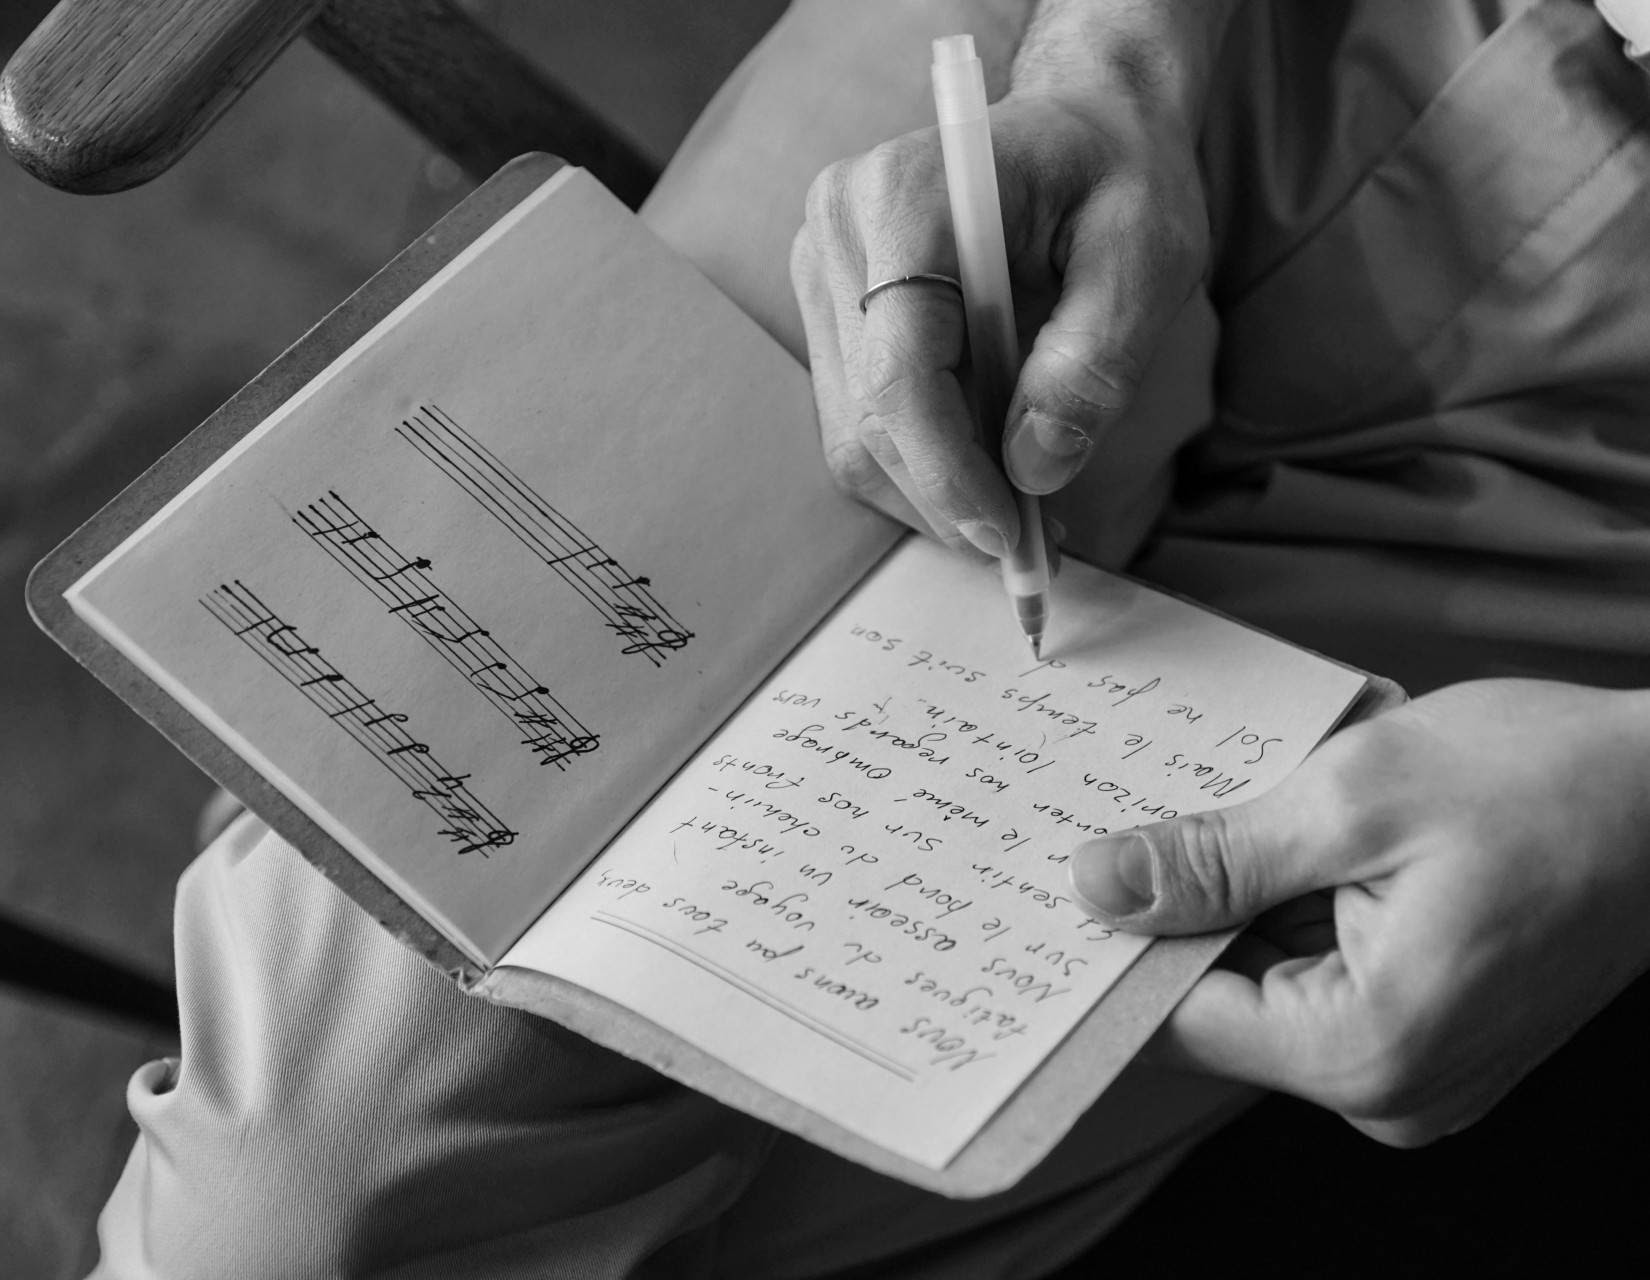 Nous avons pu tous deux,
fatigues du voyage
Nous asseoir un instant
sur le bord du chemin-
Et sentir sur nos fronts
le même ombrage
nos regards vers
orizon lointain.-
Mais le temps suit son
Sol ne pas d